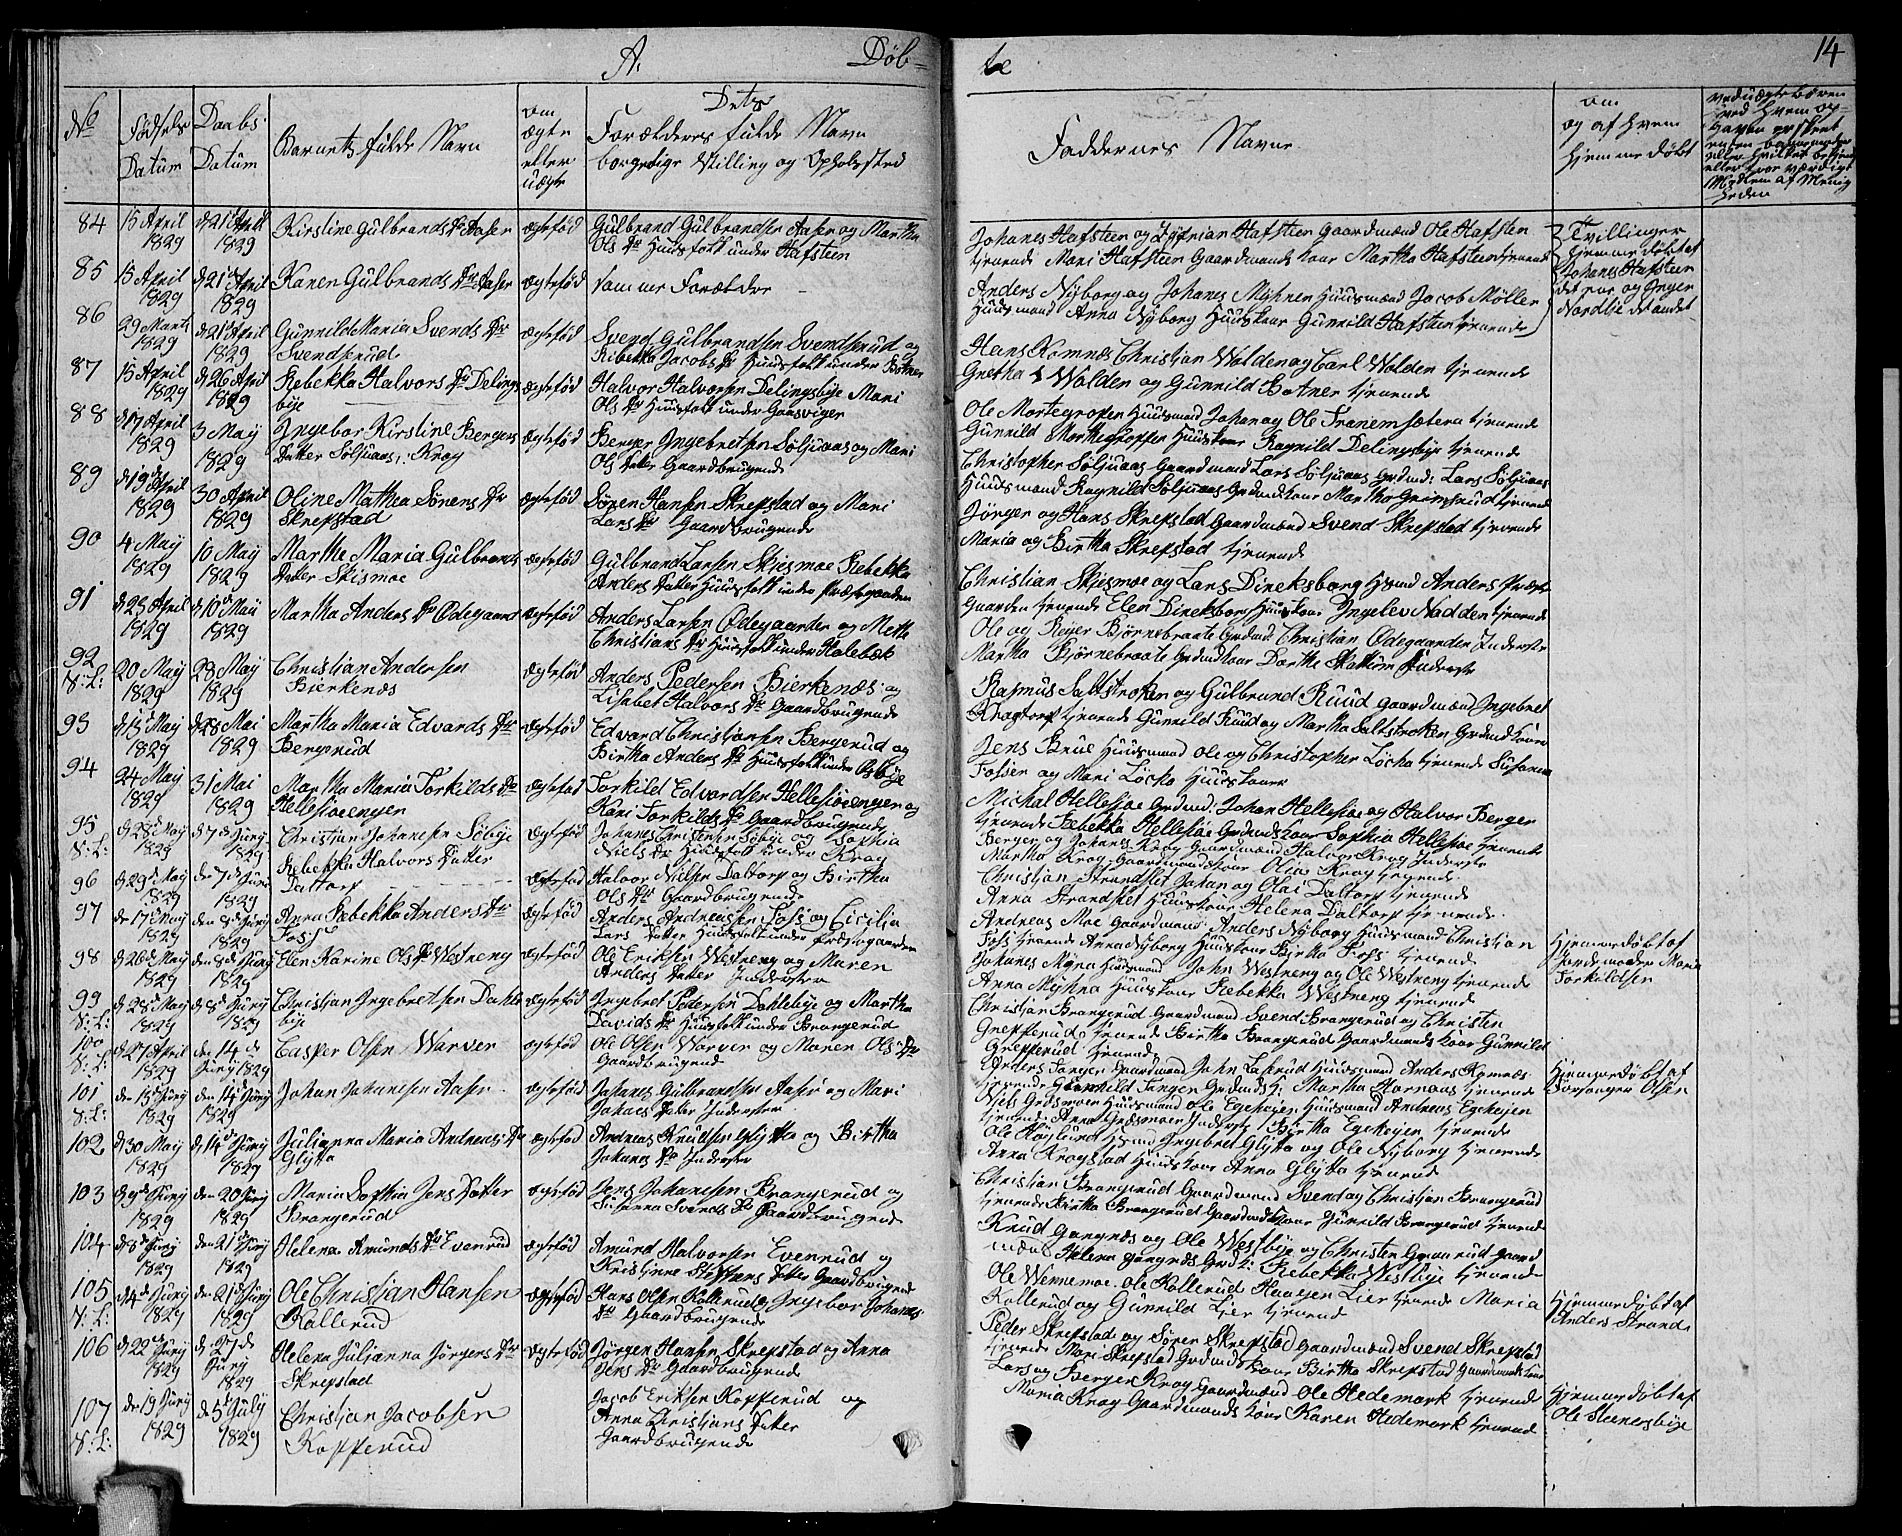 A. Døb=
te 14
No
Fødsels Datum
Daabs Datum
Barnets fulde Navn
om ægte eller uægte
Dets
Forældrenes fulde Navn
borgerlige Stilling og Opholdssted
Faddernes Navne
om
og af hvem
hjemmedøbt
84 15 April 1829 d 21de April 1829 Kirstine Gulbrands Dr Aaser ægtefød Gulbrand Gulbrandsen Aaser og Martha
Ols Dr Huusfolk under Hafsteen
Johanes Hafsteen og Hafsteen Gaardmænd Ole Hafsteen
tjenende Mari Hafsteen Gaardmands kone Martha Hafsteen tjenende
Tvillinger
hjemmedøbt af
Johanes Hafsteen
det ene og Inger
Nordbye det andet
85 15 April 1829 d 21de April 1829 Karen Gulbrands Dr Aaser ægtefød samme Forældre
Anders Nyborg og Johanes Myhren Huusmænd Jacob Møller
Huusmand Anna Nyborg Huuskone Gunnild Hafsteen tjenende
86 29 Marts 1829 d 21de April 1829 Gunnild Maria Svends Dr
Svendserud ægtefød Svend Gulbrandsen Svendserud og
Rebekka Jacobs Dr Huusfolk under Botner
Hans Komnæs Christian Wolden og Carl Wolden tjenende
Gretha Wolden og Gunnild Botner tjenende
87 15 April 1829 d 26 April 1829 Rebekka Halvors Dr Delings
bye ægtefød Halvor Halvorsen Delingsbye Mari
Ols Dr Huusfolk under Gaasviger
Ole Mortegropen Huusmand Johan og Ole Tranemsætera tjenende
Gunnild Morthegroppen Huuskone Ragnild Delingsbye tjenende
88 d 17 April 1829 3 May 1829 Ingebor Kirstine Bergers
Datter Soljuaas, Krog ægtefød Berger Ingebretsen Soljuaas og Mari
Ols Datter Gaardbrugende
Christopher Soljuaas Gaardmand Lars Soljuaas Grdmd: Lars Soljuaas
Huusmand Ragnild Soljuaas Grdmdkone Martha Grimsrud tjenende
89 d 19de April 1829 30 April 1829 Oline Mathea Sørens Dr
Skrepstad ægtefød Søren Hansen Skrepstad og Mari
Lars Dr Gaardbrugende
Jørgen og Hans Skrepstad Gaardmænd Svend Skrepstad tjenende
Maria og Birtha Skrepstad tjenende
90 4 May 1829 10 May 1829 Marthe Maria Gulbrands
Datter Skismoe ægtefød Gulbrand Larsen Skjesmoe Rebekka
Anders Datter Huusfolk under Præstegaarden
Christian Skjesmoe og Lars Direksborg Hsmd Anders Præste
Gaarden tjenende Elen Direksborg Huuskone Ingelev Nadden tjenende
91 d 25 April 1829 d 10de May 1829 Martha Anders Dr Ødegaard ægtefød Anders Larsen Ødegaarden og Mette
Christians Dr Huusfolk under Holebæk
Ole og Reyer Bjørnebraate Grdmd: Christian Ødegaarden Inderste
Martha Bjørnebraate Grdmdkone Dorthe Skattum Inderste
92 N: L: 20 May 1829 28 May 1829 Christian Andersen
Bierkenæs ægtefød Anders Pedersen Bierkenæs og
Lisabet Halvors Dr Gaardbrugende
Rasmus Saltstroken og Gulbrand Ruud Gaardmænd Ingebret
Kragtorp tjenende Gunnild Ruud og Martha Saltstroken Grdmdkoner
93 d 15de May 1829 d 28 Mai 1829 Martha Maria Edvards Dtr
Bergerud ægtefød Edvard Christiansen Bergerud og
Birtha Anders Dr Huusfolk under Osbye
Jens Brue Huusmand Ole og Christopher Løcka tjenende Susanna
Fosser og Mari Løcka Huuskoner
94 24 May 1829 31 Mai 1829 Martha Maria Torkilds Dr
Hellesiøeengen ægtefød Torkild Edvardsen Hellesiøeengen og
Kari Torkilds Dr Gaardbrugende
Michal Hellesjøe Grdmd: Johan Hellesiøe og Halvor Berger
tjenende Rebekka Hellesiøe Grdmdskone Sophia Hellesiøe tjenende
95 N: L: d 28de May 1829 d 7de Juny 1829 Christian Johansen Søbye ægtefød Johanes Christensen Søbye og Sophia
Niels Dr Huusfolk under Krog
Berger og Johanes Krog Gaardmænd Halvor Krog Inderste
Martha Krog Gaardmandskone Olia Krog tjenende
96 d 29de May 1829 den 7de Juny 1829 Rebekka Halvors Datter
Daltorp ægtefød Halvor Nielsen Daltorp og Birtha
Ols Dr Gaardbrugende
Christian Strandslet Johan og Olai Daltorp tjenende
Anna Strandslet Huuskone Helena Daltorp tjenende
97 den 17de May 1829 den 8de Juny 1829 Anna Rebekka Anders Dr
Foss ægtefød Anders Andreassen Foss og Cicilia
Lars Datter Huusfolk under Præstegaarden
Andreas Moe Gaardmand Anders Nyborg Huusmand Christian
Foss tjenende Anna Nyborg Huuskone Birtha Foss tjenende
98 d 26de May 1829 d 8de Juny 1829 Elen Karine Ols Dr Westreng ægtefød Ole Eriksen Westreng og Maren
Anders Datter Inderster
Johanes Myna Huusmand John Westreng og Ole Westreng tjenende
Anna Myhna Huuskone Rebekka Westreng tjenende
Hjemmedøbt af
Jordemoder Maria
Torkildsen
99 N: L: d 28de May 1829 d 8de Juny 1829 Christian Ingebretsen Dahle
bye ægtefød Ingebret Pedersen Dahlebye og Martha
Davids Dr Huusfolk under Brangerud
Christian Brangerud Gaardmand Svend Brangerud og Christen
Grepperud tjenende Birtha Brangerud Gaardmandskone Gunnild
Grepperud tjenende
100 N: L: d 27 April 1829 den 14de Juny 1829 Casper Olsen Warver ægtefød Ole Olsen Warver og Maren Ols Dr
Gaardbrugend
Anders Tangen Gaardmand John Laserud Huusmand Anders Komnæs
tjenende Gunnild Tangen Grdmdsk: Martha Hornaas tjenende
Hjemmedøbt af
Forsanger Olsen
101 N: L: den 1ste Juny 1829 den 14de Juny 1829 Johan Johanesen Aaser ægtefød Johanes Gulbrandsen Aaser og Mari
Johanes Datter Inderster
Niels Grosmoer Huusmand Ole Egeheien Huusmand Andreas Egeheien
tjenende Anna Grosmoer Inderste Birtha Egeheien tjenende
102 d 30 May 1829 d 14de Juny 1829 Julianna Maria Andreas Dr
Glytta ægtefød Andreas Knudsen Glytta og Birtha
Johanes Dr Inderster
Ole Høylund Hsmd Ingebret Glytta og Ole Nyborg tjenende
Anna Kragstad Huuskone Anna Glytta tjenende
103 d 9de Juny 1829 den 20 Juny 1829 Maria Sophia Jens Datter
Brangerud ægtefød Jens Johansen Brangerud og
Susanna Svends Dr Gaardbrugend
Christian Brangerud Gaardmand Svend og Christian Brangerud
tjenende Birtha Brangerud Gaardmdkone Gunnild Brangerud tjenende
104 d 8de Juny 1829 den 21de Juny 1829 Helena Amunds Dr Evenrud ægtefød Amund Halvorsen Evenrud og
Kristjnne Steffens Datter Gaardbrugend
Knud Gangnæs og Ole Westbye og Christen Graarud Gaard
mænd Helena Gangnæs Grdk: Rebekka Westbye tjenende
105 N: L: d 4de Juny 1829 den 21de Juny 1829 Ole Christian Hansen
Kallerud ægtefød Hans Olsen Kallerud og Ingebor Johanes
Dr Gaardbrugende
Ole Wennemoe. Ole Kallerud Haagen Lier tjenende Maria
Kallerud og Gunnild Lier tjenend
Hjemmedøbt af
Anders Strand
106 d 22de Juny 1829 d 27de Juny 1829 Helena Julianna Jørgens Dr
Skrepstad ægtefød Jørgen Hansen Skrepstad og Anna
Jens Dr Gaardbrugende
Peder Skrepstad og Søren Skrepstad Gaardmænd Svend Skrepstad
tjenende Mari Skrepstad Grdmdskone Birtha Skrepstad Gaardmdskone
107 N: L: den 19 Juny 1829 den 5te July 1829 Christian Jacobsen
Kopperud Jacob Eriksen Kopperud og
Anna Christians Datter
Gaardbrugende
Lars og Berger Krog Gaardmænd Ole Hedemark tjenende
Maria Krog Gaardmandskone Karen Hedemark tjenend
Hjemmedøbt af
Ole Steenersbye